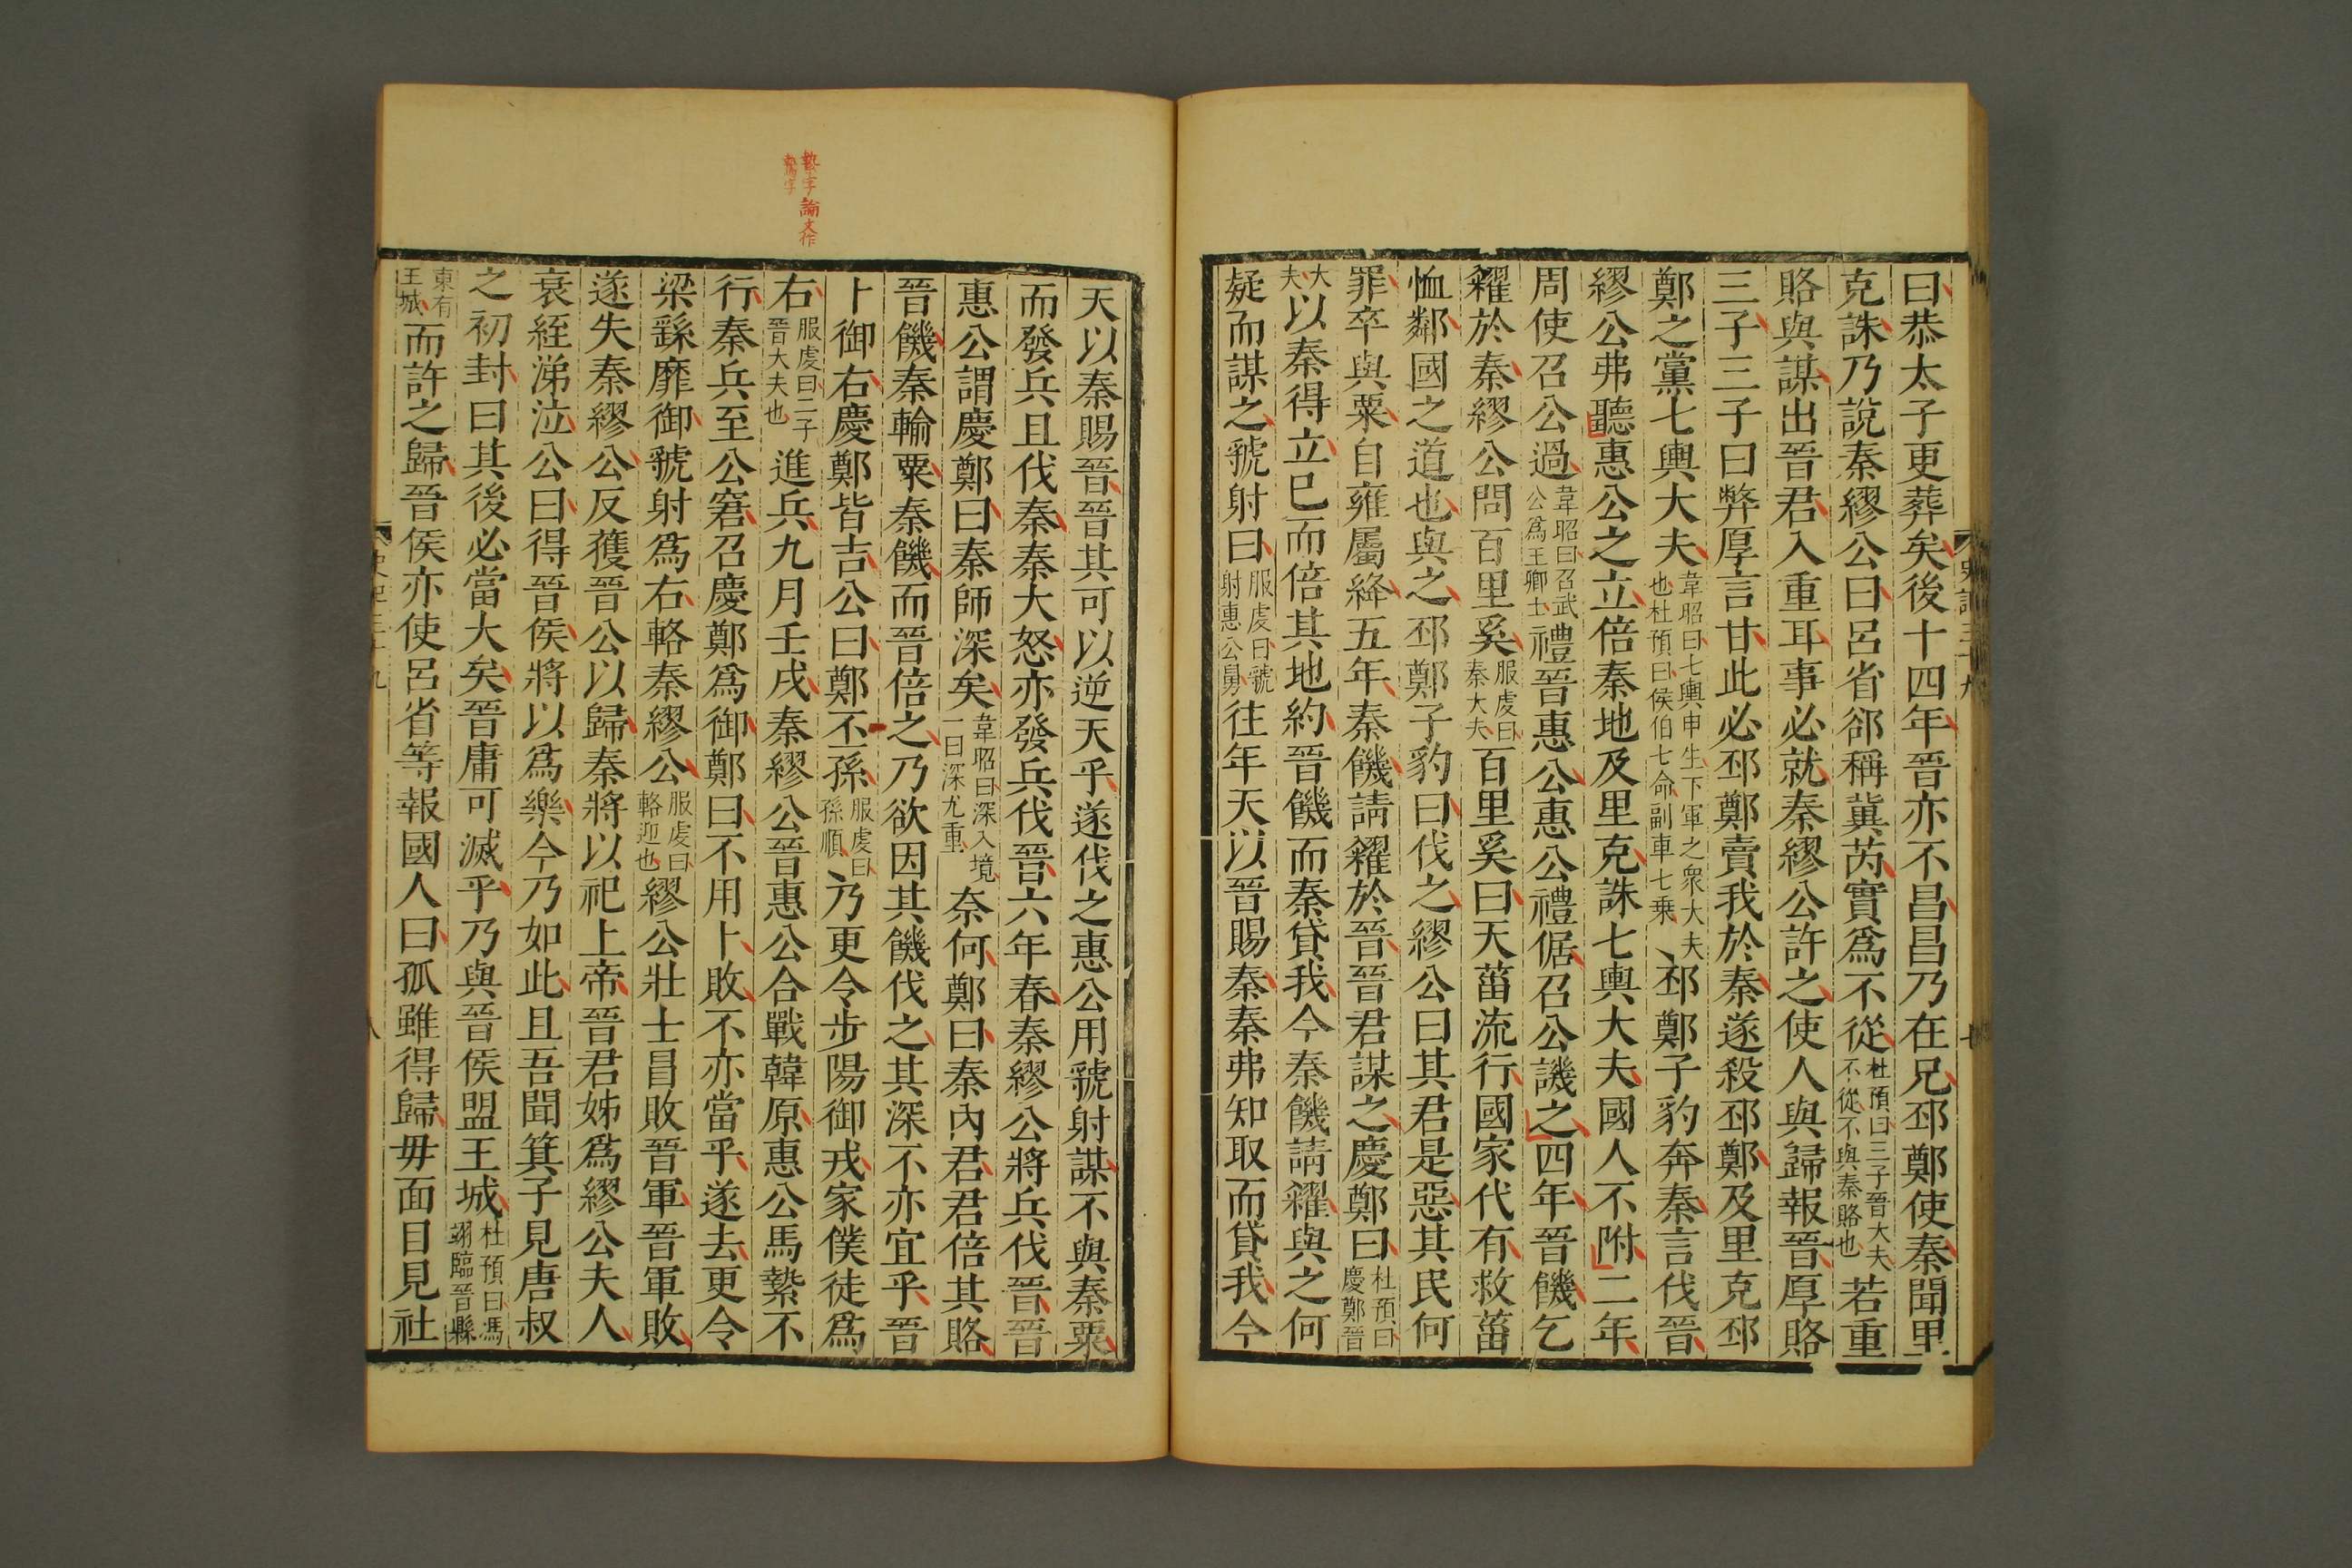 曰恭太子更葬矣後十四年晉亦不昌昌乃在兄邳鄭使秦聞里
克誅乃說秦繆公曰呂省郤稱冀芮實爲不從杜預曰三子晉大夫不從不與秦賂也若重
賂與謀出晉君入重耳事必就秦繆公許之使人與歸報晉厚賂
三子三子曰弊厚言甘此必邳鄭賣我於秦遂殺邳鄭及里克邳
鄭之黨七輿大夫韋昭曰七輿申生下軍之衆大夫也杜預曰侯伯七命副車七乘邳鄭子豹奔秦言伐晉
繆公弗聽惠公之立倍秦地及里克誅七輿大夫國人不附二年
周使召公過韋昭曰召武公爲王卿士禮晉惠公惠公禮倨召公譏之四年晉饑乞
糴於秦繆公問百里奚服虔曰秦大夫百里奚曰天菑流行國家代有救菑
恤鄰國之道也與之邳鄭子豹曰伐之繆公曰其君是惡其民何
罪卒與粟自雍屬絳五年秦饑請糴於晉晉君謀之慶鄭曰杜預曰慶鄭晉
大夫以秦得立已而倍其地約晉饑而秦貸我今秦饑請糴與之何
疑而謀之虢射曰服虔曰虢射惠公舅往年天以晉賜秦秦弗知取而貸我今
史記三十九
七
天以秦賜晉晉其可以逆天乎遂伐之惠公用虢射謀不與秦粟
而發兵且伐秦秦大怒亦發兵伐晉六年春秦繆公將兵伐晉晉
惠公謂慶鄭曰秦師深矣韋昭曰深入境一曰深尤重奈何鄭曰秦內君君倍其賂
晉饑秦輸粟秦饑而晉倍之乃欲因其饑伐之其深不亦宜乎晉
卜御右慶鄭皆吉公曰鄭不孫服虔曰孫順乃更令步陽御戎家僕徒爲
右服虔曰二子晉大夫也進兵九月壬戌秦繆公晉惠公合戰韓原惠公馬騺不
行秦兵至公窘召慶鄭爲御鄭曰不用卜敗不亦當乎遂去更令
梁繇靡御虢射爲右輅秦繆公服虔曰輅迎也繆公壯士冒敗晉軍晉軍敗
遂失秦繆公反獲晉公以歸秦將以祀上帝晉君姊爲繆公夫人
衰絰涕泣公曰得晉侯將以爲樂今乃如此且吾聞箕子見唐叔
之初封曰其後必當大矣晉庸可滅乎乃與晉侯盟王城杜預曰馮翊臨晉縣
東有王城而許之歸晉侯亦使呂省等報國人曰孤雖得歸毋面目見社
八